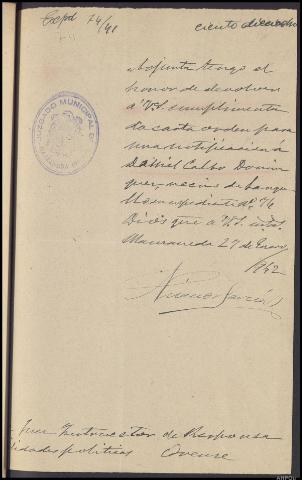 Expd 74/41
ciento dieciocho
JUZGADO MUNICIPAL
Adjunta tengo el
honor de devolver
a VS. cumplimenta
da carta orden para
una notificacion á
Daniel Calbo Domin
guez, vecino de
expediente nº 74
Dios que a VS. ms. as.
27 de Enero
1942
Juez Instructor de Responsa
bilidades politicas Orense